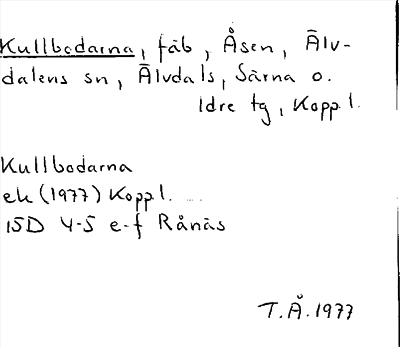 Kullbodarna, fäb, Åsen, Älv-
dalens sn, Älvdals, Särna o.
Idre tg, Koppl.
Kullbodarna
ek (1977) Koppl.
15D 4-5 e-f Rånäs
T.Å. 1977